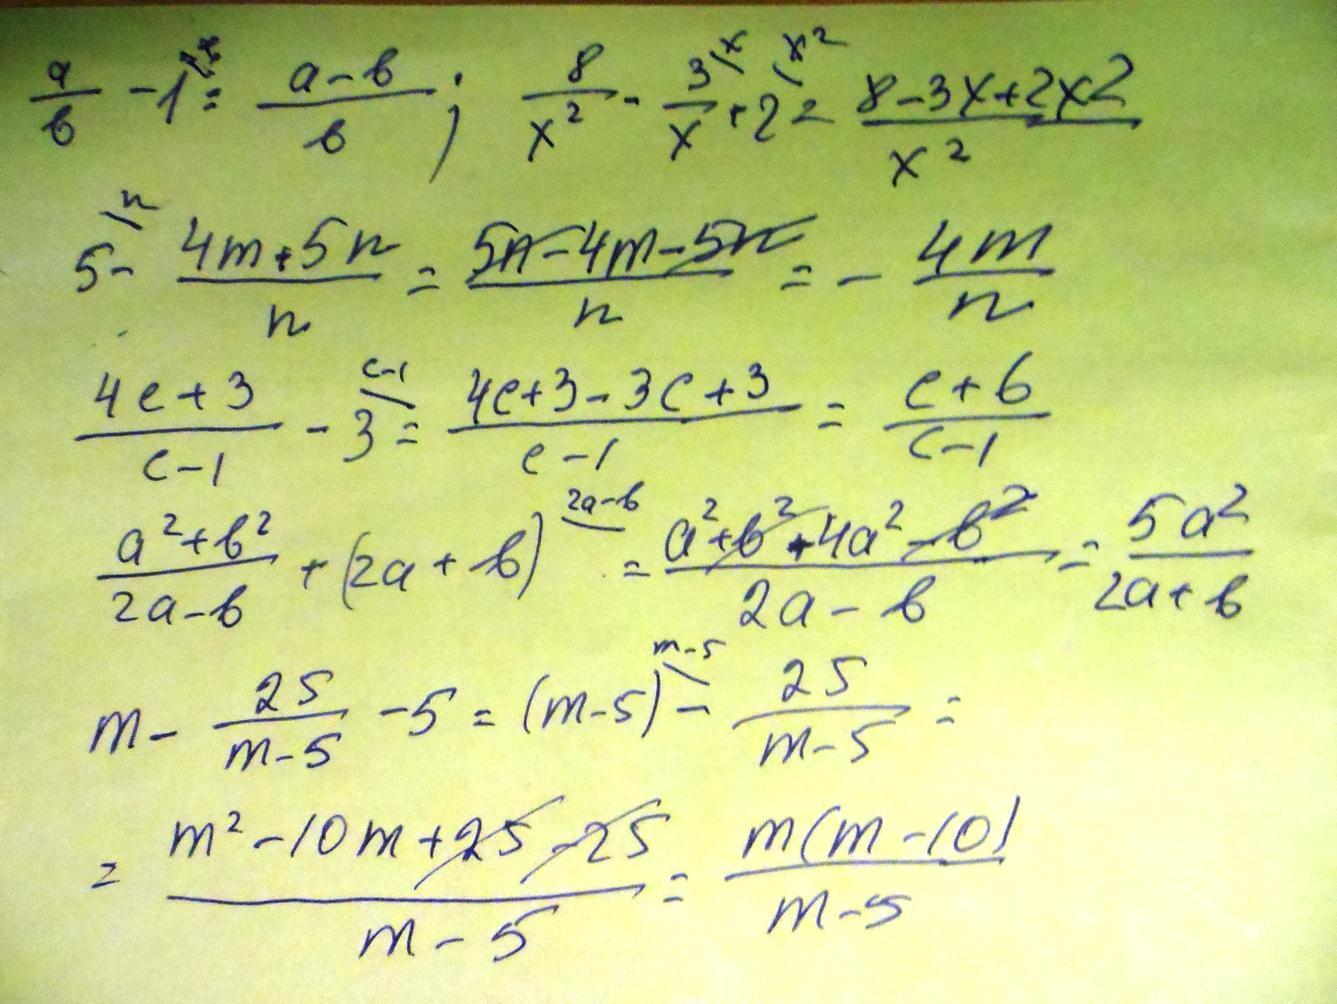 a/b - 1 = (a-b)/b ; 8/x² - 3/x + 2 = (8-3x+2x2)/x²
5 - (4m+5n)/n = (5n-4m-5n)/n = - 4m/n
(4c+3)/(c-1) - 3 = (4c+3-3c+3)/(c-1) = (c+6)/(c-1)
(a²+b²)/(2a-b) + (2a+b) = (a²+b²+4a²-b²)/(2a-b) = 5a²/(2a+b)
m - 25/(m-5) - 5 = (m-5) - 25/(m-5) =
= (m²-10m+25-25)/(m-5) = m(m-10)/(m-5)